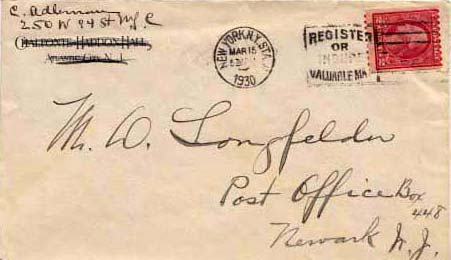 C. Adleman
250 W 94 St N.Y.C
CHALFONTE-HADDON HALL
ATLANTIC CITY, N.J.
NEW YORK, N.Y. STA.
MAR 15
1930
REGISTER
OR
INSURE
VALUABLE MA
M. O. Longfelder
Post Office Box
448
Newark N.J.